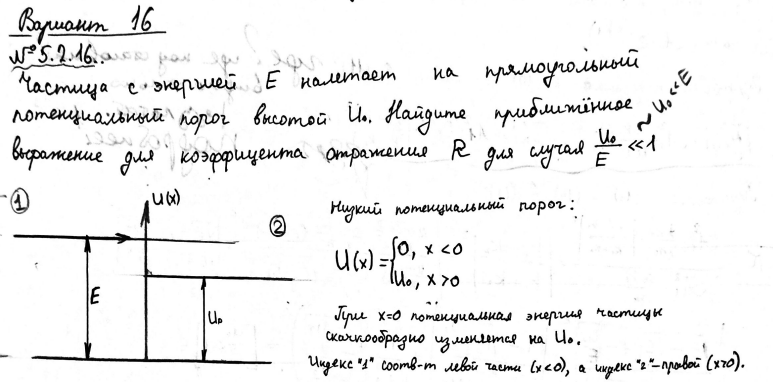 Вариант 16
№5.2.16.
Частица с энергией E налетает на прямоугольный
потенциальный порог высотой U₀. Найдите приближённое
выражение для коэффицента отражения R для случая U₀/E ≪ 1 ~ U₀ ≪ E
① U(x) ②
E
U₀
Низкий потенциальный порог:
U(x) = {0, x < 0
U₀, x > 0
При x=0 потенциальная энергия частицы
скачкообразно изменяется на U₀.
Индекс "1" соотв-т левой части (x<0), а индекс "2" – правой (x>0).